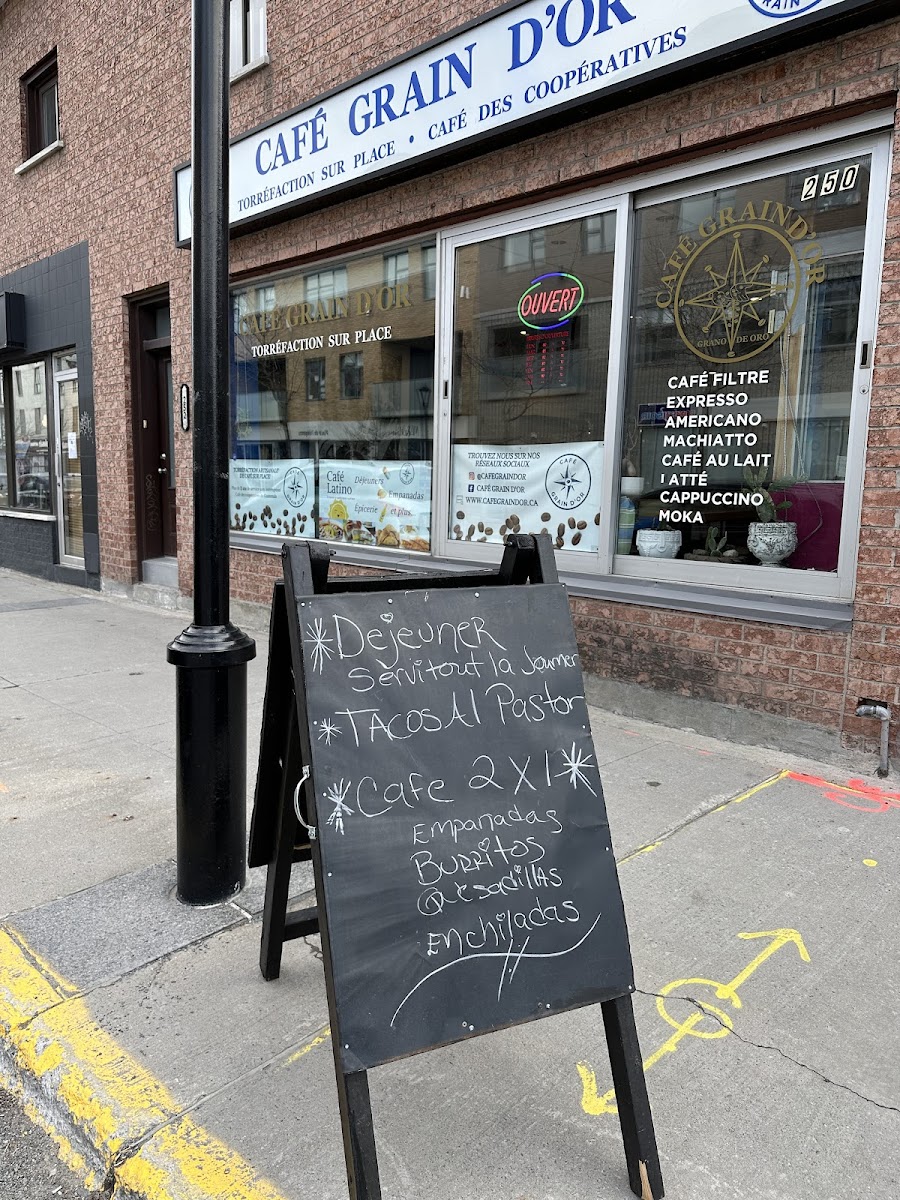 CAFÉ GRAIN D'OR
TORRÉFACTION SUR PLACE • CAFÉ DES COOPÉRATIVES
250
CAFÉ GRAIN D'OR
TORRÉFACTION SUR PLACE
OUVERT
CAFÉ GRAIN D'OR
GRANO DE ORO
CAFÉ FILTRE
EXPRESSO
AMERICANO
MACHIATTO
CAFÉ AU LAIT
LATTÉ
CAPPUCCINO
MOKA
TORRÉFACTION ARTISANALE
Café
Latino
Déjeuners
Empanadas
Épicerie
et plus
TROUVEZ NOUS SUR NOS
RÉSEAUX SOCIAUX
@CAFEGRAINDOR
CAFÉ GRAIN D'OR
WWW.CAFEGRAINDOR.CA
CAFÉ
GRAIN D'OR
Dejeuner
servi tout la Journer
TACOS Al Pastor
Cafe 2X1
Empanadas
Burritos
Quesadillas
Enchiladas